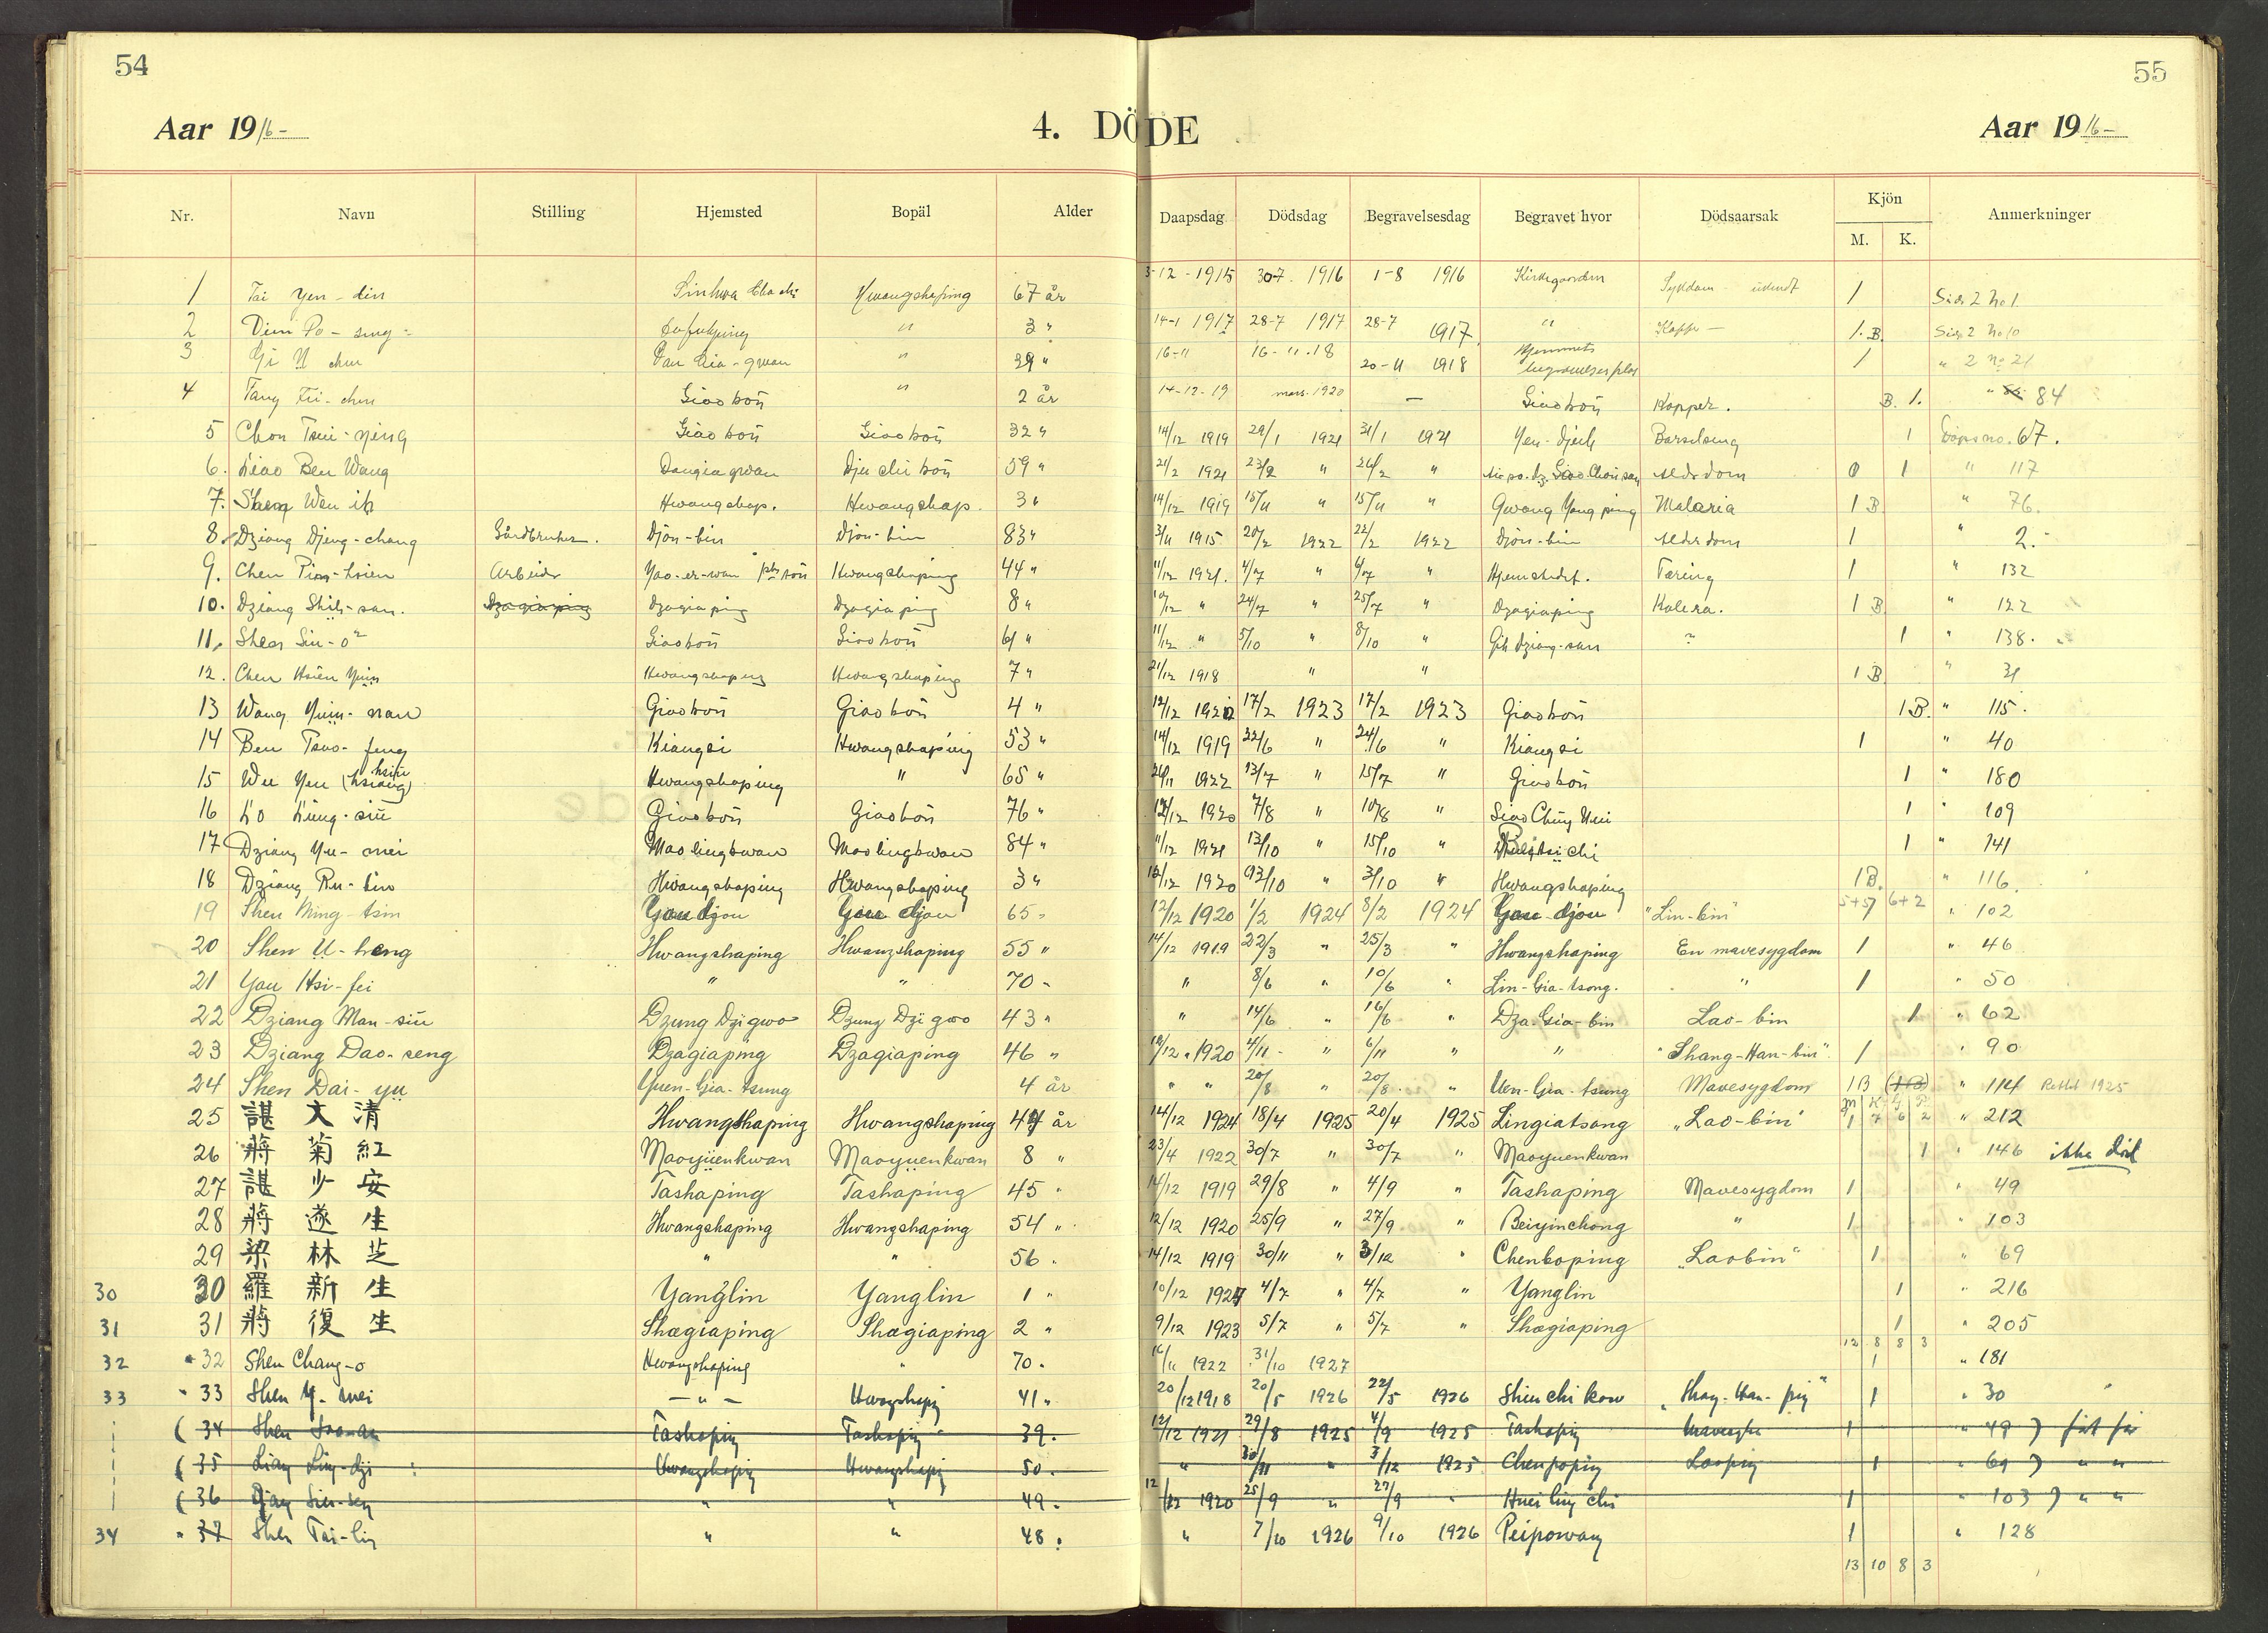 54
55
Aar 1916-
4. DÖDE
Aar 1916-
Nr. Navn Stilling Hjemsted Bopäl Alder Daapsdag Dödsdag Begravelsesdag Begravet hvor Dödsaarsak Kjön Anmerkninger
M. K.
1 Tai Yen-din Sinhwa Hwangshaping 67 år 3-12-1915 30-7. 1916 1-8 1916 Kirkegaarden Sykdom 1 Side 2 No 1
2 Po-sung " 3 " 14-1 1917 28-7 1917 28-7 1917 " Kopper 1. B. Side 2 No 10
3 " 39 " 16-11 16-11.18 20-11 1918 Hjemmets 1 " 2 No 21
4 Tang Fu-chen Giaotou " 2 år 14-12-19 mars. 1920 — Giaotou Kopper. B. 1. " 84
5 Chou Tsui-ying Giaotou Giaotou 32 " 14/12 1919 29/1 1921 31/1 1921 Yen-djich Barselseng 1 Daapsno. 67.
6. Liao Ben Wang Dangiagwan Dju chi tou 59 " 21/2 1921 23/2 " 26/2 " Alderdom 0 1 " 117
7. Sheng Wen ih Hwangshap. Hwangshap. 3 " 14/12 1919 15/11 " 15/11 " Gwang Yang ping Malaria 1 B " 76.
8. Dziang Djeng-chang Gårdbruker. Djön-bin Djön-bin 83 " 3/11 1915 20/2 1922 22/2 1922 Djön-bin Alderdom 1 " 2.-
9. Chen Ping-hsien Arbeider Yao-er-wan Hwangshaping 44 " 11/12 1921. 4/7 " 6/7 " Hjemstedet. Tæring 1 " 132
10. Dziang Shih-san. Dzagiaping Dzagiaping Dzagiaping 8 " 10/12 " 24/7 " 25/7 " Dzagiaping Kolera. 1 B " 122
11. Shen Siu-o² Giaotou Giaotou 61 " 11/12 " 5/10 " 8/10 " Gih Dziang-san ? 1 " 138.
12. Chen Hsien Yuin Hwangshaping Hwangshaping 7 " 21/12 1918 " " 1 B " 31
13 Wang Yuin-nan Giaotou Giaotou 4 " 12/12 1920 17/2 1923 17/2 1923 Giaotou 1B. " 115.
14 Ben Tsuo-feng Kiangsi Hwangshaping 53 " 14/12 1919 22/6 " 24/6 " Kiangsi 1 " 40
15 Wu Yen (hsiang) hsiu Hwangshaping " 65 " 26/11 1922 13/7 " 15/7 " Giaotou 1 " 180
16 Lo Lüng-siu Giaotou Giaotou 76 " 12/12 1920 7/8 " 10/8 " Siao Chung 1 " 109
17 Dziang Yu-mei Maolingkwan Maolingkwan 84 " 11/12 1921 13/10 " 15/10 " 1 " 141
18 Dziang Ru-lin Hwangshaping Hwangshaping 3 " 12/12 1920 /10 " 3/10 " Hwangshaping 1B. " 116.
19 Shen Ming-tsin Gau djou Gau djou 65 " 12/12 1920 1/2 1924 8/2 1924 Gau-djou "Lin-bin" 5+5 6+2 " 102
20 Shen U-heng Hwangshaping Hwangshaping 55 " 14/12 1919 22/3 " 25/3 " Hwangshaping En mavesygdom 1 " 46
21 Yau Hsi-fei " " 70 " " 8/6 " 10/6 " Lin-Gia-tsong. " 1 " 50
22 Dziang Man-siu Dzung Dzi gwo Dzung Dzi gwo 43 " " 14/6 " 16/6 " Dza-Gia-bin Lao-bin 1 " 62
23 Dziang Dao-seng Dzagiaping Dzagiaping 46 " 12/12 1920 4/11 " 6/11 " " "Shang-Han-bin" 1 " 90
24 Shen Dai-yu Yuen-Gia-tsung 4 år " " 20/8 " 20/8 " Uen-Gia-tsung Mavesygdom 1B (1B) " 114 Rettet 1925
25 諶 文 清 Hwangshaping Hwangshaping 44 år 14/12 1924 18/4 1925 20/4 1925 Lingiatsong "Lao-bin" 1 7 6 2 " 212
26 蔣 菊 紅 Maoyüenkwan Maoyuenkwan 8 " 23/4 1922 30/7 " 30/7 " Maoyuenkwan 1 " 146 ikke död
27 諶 少 安 Tashaping Tashaping 45 " 14/12 1919 29/8 " 4/9 " Tashaping Mavesygdom 1 " 49
28 蔣 遂 生 Hwangshaping Hwangshaping 54 " 12/12 1920 25/9 " 27/9 " Beiyinchong " 1 " 103
29 梁 林 芝 " " 56 " 14/12 1919 30/11 " 3/12 " Chenboping "Laobin" 1 " 69
30 30 羅 新 生 Yanglin Yanglin 1 " 10/12 1924 4/7 " 4/7 " Yanglin 1 " 216
31 31 蔣 復 生 Shægiaping Shægiaping 2 " 9/12 1923 5/7 " 5/7 " Shægiaping 1 " 205
12 8 8 3
32 32 Shen Chang-o Hwangshaping " 70 " 16/11 1922 31/10 1927 1 " 181
33 33 Shen Y-mei — " — Hwangshaping 41 " 20/12 1918 20/5 1926 22/5 1926 Shin chi kow "Shang-Han-pin" 1 " 30
( 34 Shen Sao-an Tashaping Tashaping 39 " 12/12 1921 29/8 1925 4/9 1925 Tashaping 1 " 49 )
( 35 Liang Lin-dzi Hwangshaping Hwangshaping 50 " " 30/11 " 3/12 1925 Chenpoping Laopin 1 " 69 ) " "
( 36 Djang Siu-sen " " 49 " 12/12 1920 25/9 " 27/9 " Huei ling chi 1 " 103 ) " "
34 37 Shen Tai-lin " " 48 " " 7/10 1926 9/10 1926 Peipowang 1 " 128
13 10 8 3